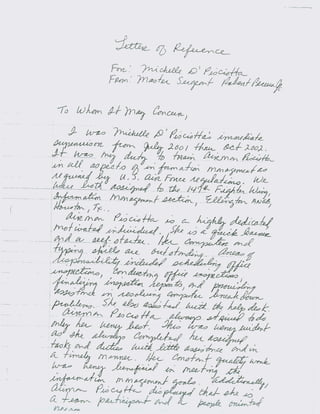 Letter of Reference
For: Michelle D'Pisciotta
From: Master Sergeant Robert
To Whom It May Concern,
I was Michelle D'Pisciotta's immediate
supervisor from July 2001 thru Oct 2002.
It was my duty to train Airman Pisciotta
in all aspects of information management as
required by U.S. Air Force regulations. We
were both assigned to the 147th Fighter Wing,
Information Management section, Ellington
Houston, Tx.
Airman Pisciotta is a highly dedicated
motivated individual. She is a quick learner
and a self starter. Her computer and
typing skills are outstanding. Areas of
responsibility included scheduling office
inspections, Conducting office inspections
finalizing inspection reports, and providing
assistance in resolving computer break down
problems. She also assisted with the help desk.
Airman Pisciotta always strived to do
only her very best. This was very evident
as she always completed her assigned
tasks and duties with little assistance and in
a timely manner. Her constant quality work
was very beneficial in meeting the
information management goals. Additionally,
Airman Pisciotta displayed that she is
a team participant and a people oriented
person